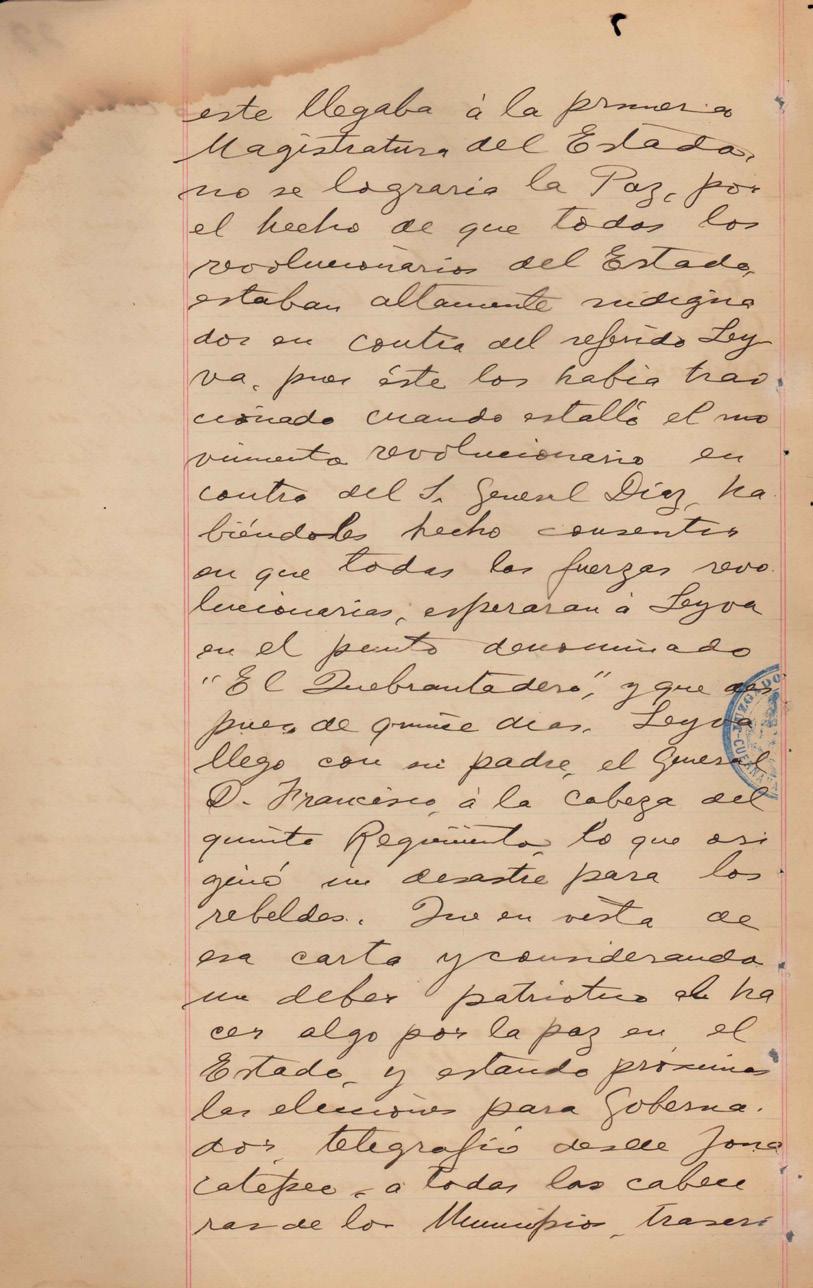 este llegaba á la primera
Magistratura del Estado,
no se lograria la Paz, por
el hecho de que todos los
revolucionarios del Estado,
estaban altamente indigna
dos en contra del referido Ley
va, pues éste los habia trai
cionado cuando estalló el mo
vimiento revolucionario en
contra del S. General Díaz, ha
biéndoles hecho consentir
en que todas las fuerzas revo
lucionarias, esperaran á Leyva
en el punto denominado
"El Quebrantadero", y que des
pues de quince dias, Leyva
llego con su padre, el General
D. Francisco, á la cabeza del
quinto Regimiento, lo que ori
ginó un desastre para los
rebeldes. Que en vista de
esa carta y considerando
un deber patriotico el ha
cer algo por la paz en el
Estado, y estando próximas
las elecciones para Goberna.
dor, telegrafió desde Jona
catepec, a todas las cabece
ras de los Municipios, trascri
JUZGADO
CUERNAVA